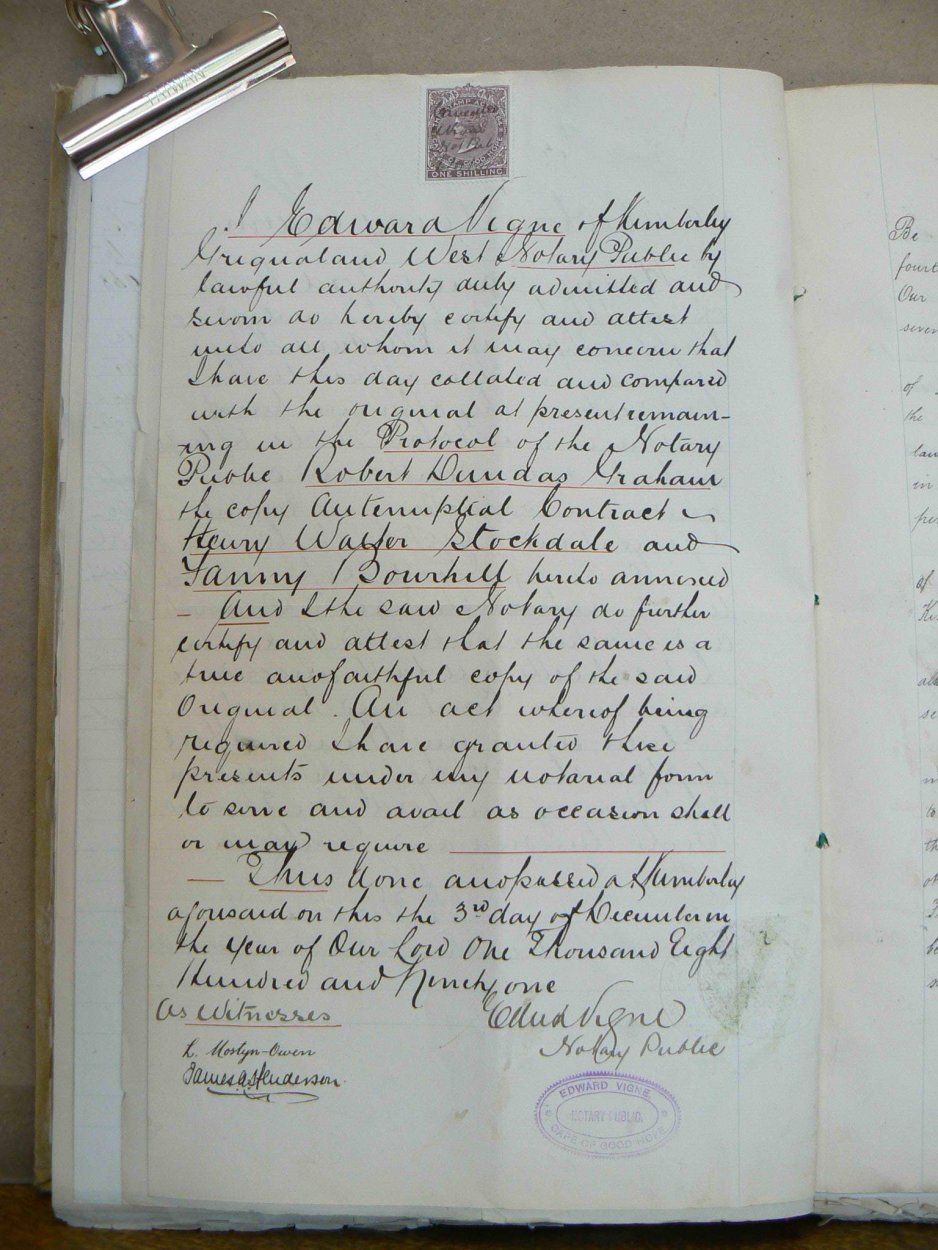 ONE SHILLING
I Edward Vigne of Kimberley
Griqualand West Notary Public by
lawful authority duly admitted and
sworn do hereby certify and attest
unto all whom it may concern that
I have this day collated and compared
with the original at present remain-
ing in the Protocol of the Notary
Public Robert Dundas Graham
the copy Antenuptial Contract
Henry Walter Stockdale and
Fanny Bowrhill hereto annexed
– And I the said Notary do further
certify and attest that the same is a
true and faithful copy of the said
Original. An act whereof being
required I have granted these
presents under my notarial form
to serve and avail as occasion shall
or may require
— Thus done and passed at Kimberley
aforesaid on this the 3rd day of December in
the year of Our Lord One Thousand Eight
Hundred and Ninety one
As Witnesses
Edwd Vigne
Notary Public
L. Mostyn-Owen
James A. Henderson
EDWARD VIGNE.
NOTARY PUBLIC,
CAPE OF GOOD HOPE
Be
fourt
Our
seven
of
the
law
in
per
of
Ki